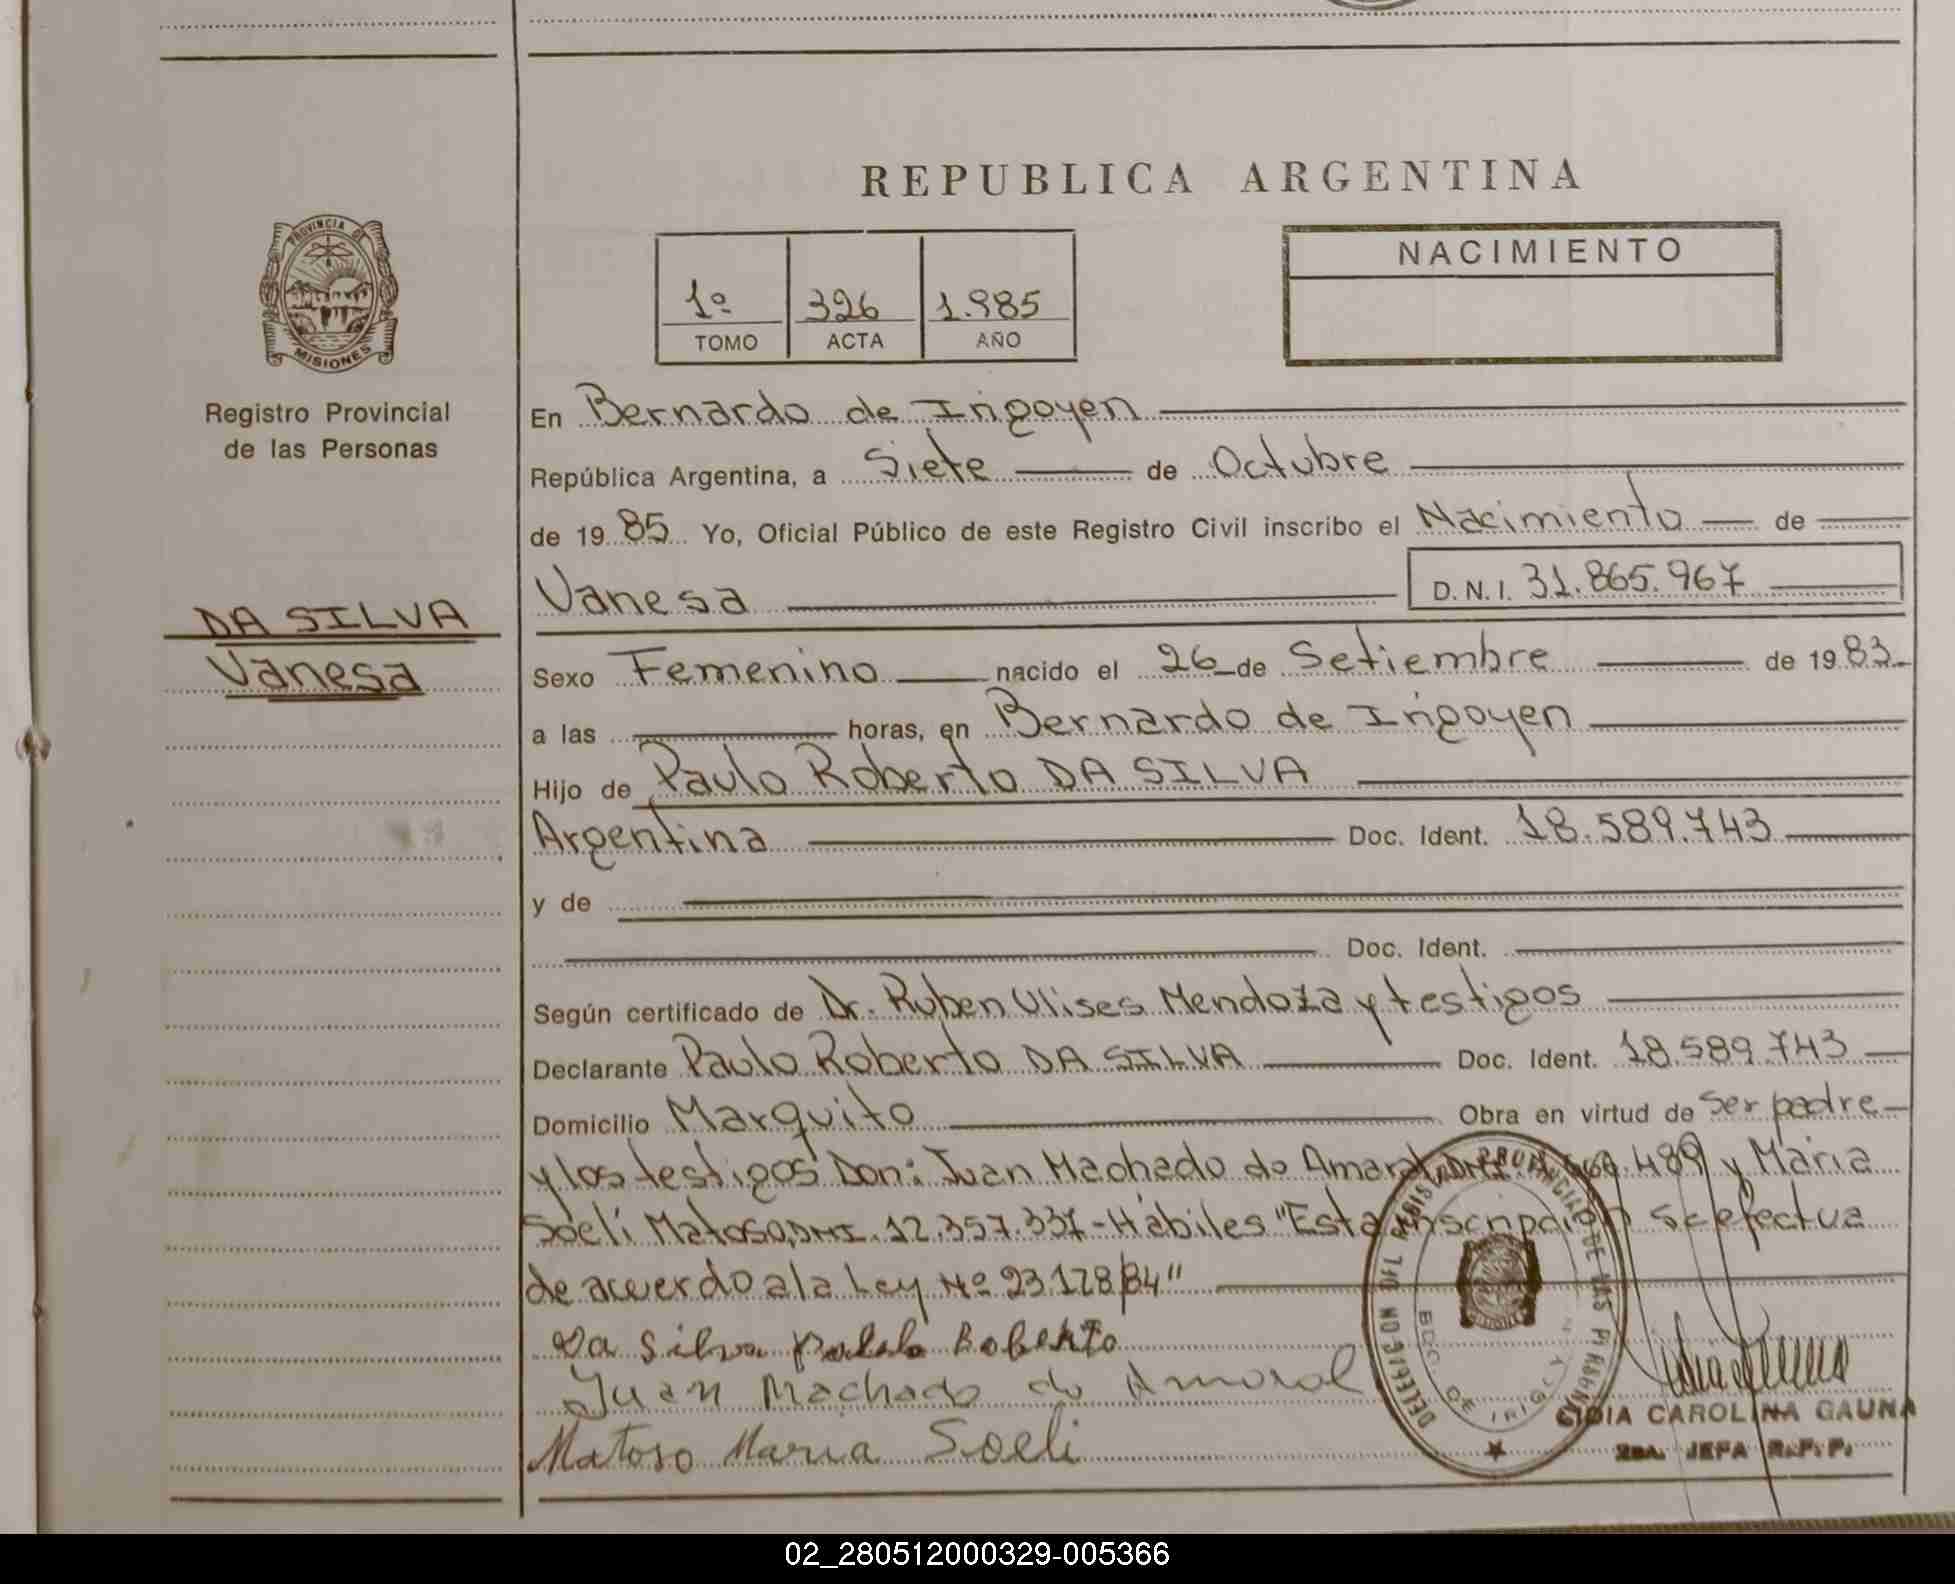 REPUBLICA ARGENTINA
PROVINCIA DE
MISIONES
Registro Provincial
de las Personas
1º 326 1.985
TOMO ACTA AÑO
NACIMIENTO
En Bernardo de Irigoyen
República Argentina, a Siete de Octubre
de 1985 Yo, Oficial Público de este Registro Civil inscribo el Nacimiento de
Vanesa D.N.I. 31.865.967
DA SILVA
Vanesa
Sexo Femenino nacido el 26 de Setiembre de 1983
a las horas, en Bernardo de Irigoyen
Hijo de Paulo Roberto DA SILVA
Argentina Doc. Ident. 18.589.743
y de
Doc. Ident.
Según certificado de Dr. Ruben Ulises Mendoza y testigos
Declarante Paulo Roberto DA SILVA Doc. Ident. 18.589.743
Domicilio Marquito Obra en virtud de Ser padre
y los testigos Don: Juan Machado do Amaral, DNI. 489 y Maria
Soeli Matoso, DNI. 12.357.337 - Hábiles "Esta inscripción se efectua
de acuerdo a la Ley Nº 23.128/84"
Da Silva Paulo Roberto
Juan Machado do Amaral
Matoso Maria Soeli
DELEGACION DEL REGISTRO PROVINCIAL DE LAS PERSONAS
BDO. DE IRIGOYEN
LIDIA CAROLINA GAUNA
2da. JEFA R.P.P.
02_280512000329-005366